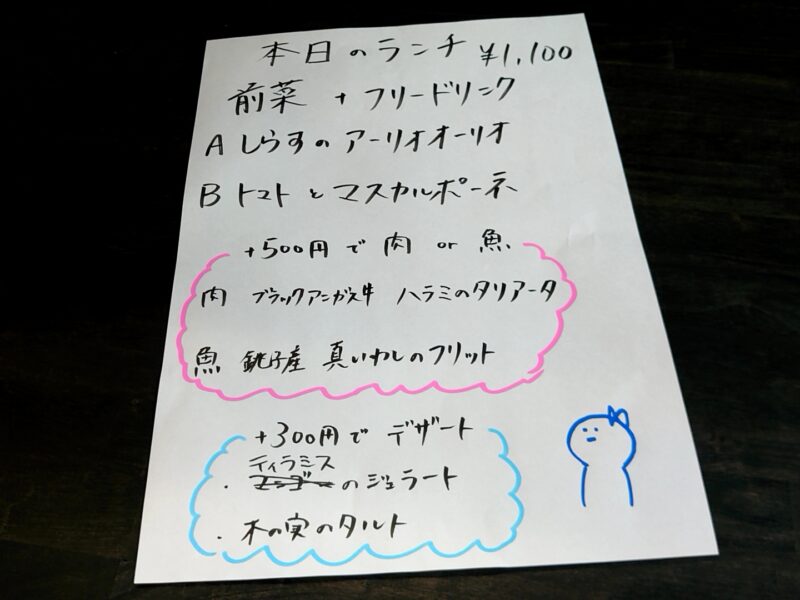 本日のランチ ¥1,100
前菜 + フリードリンク
A しらすのアーリオオーリオ
B トマトとマスカルポーネ
+500円で 肉 or 魚
肉 ブラックアンガス牛 ハラミのタリアータ
魚 銚子産 真いわしのフリット
+300円で デザート
ティラミス
・ のジェラート
・木の実のタルト